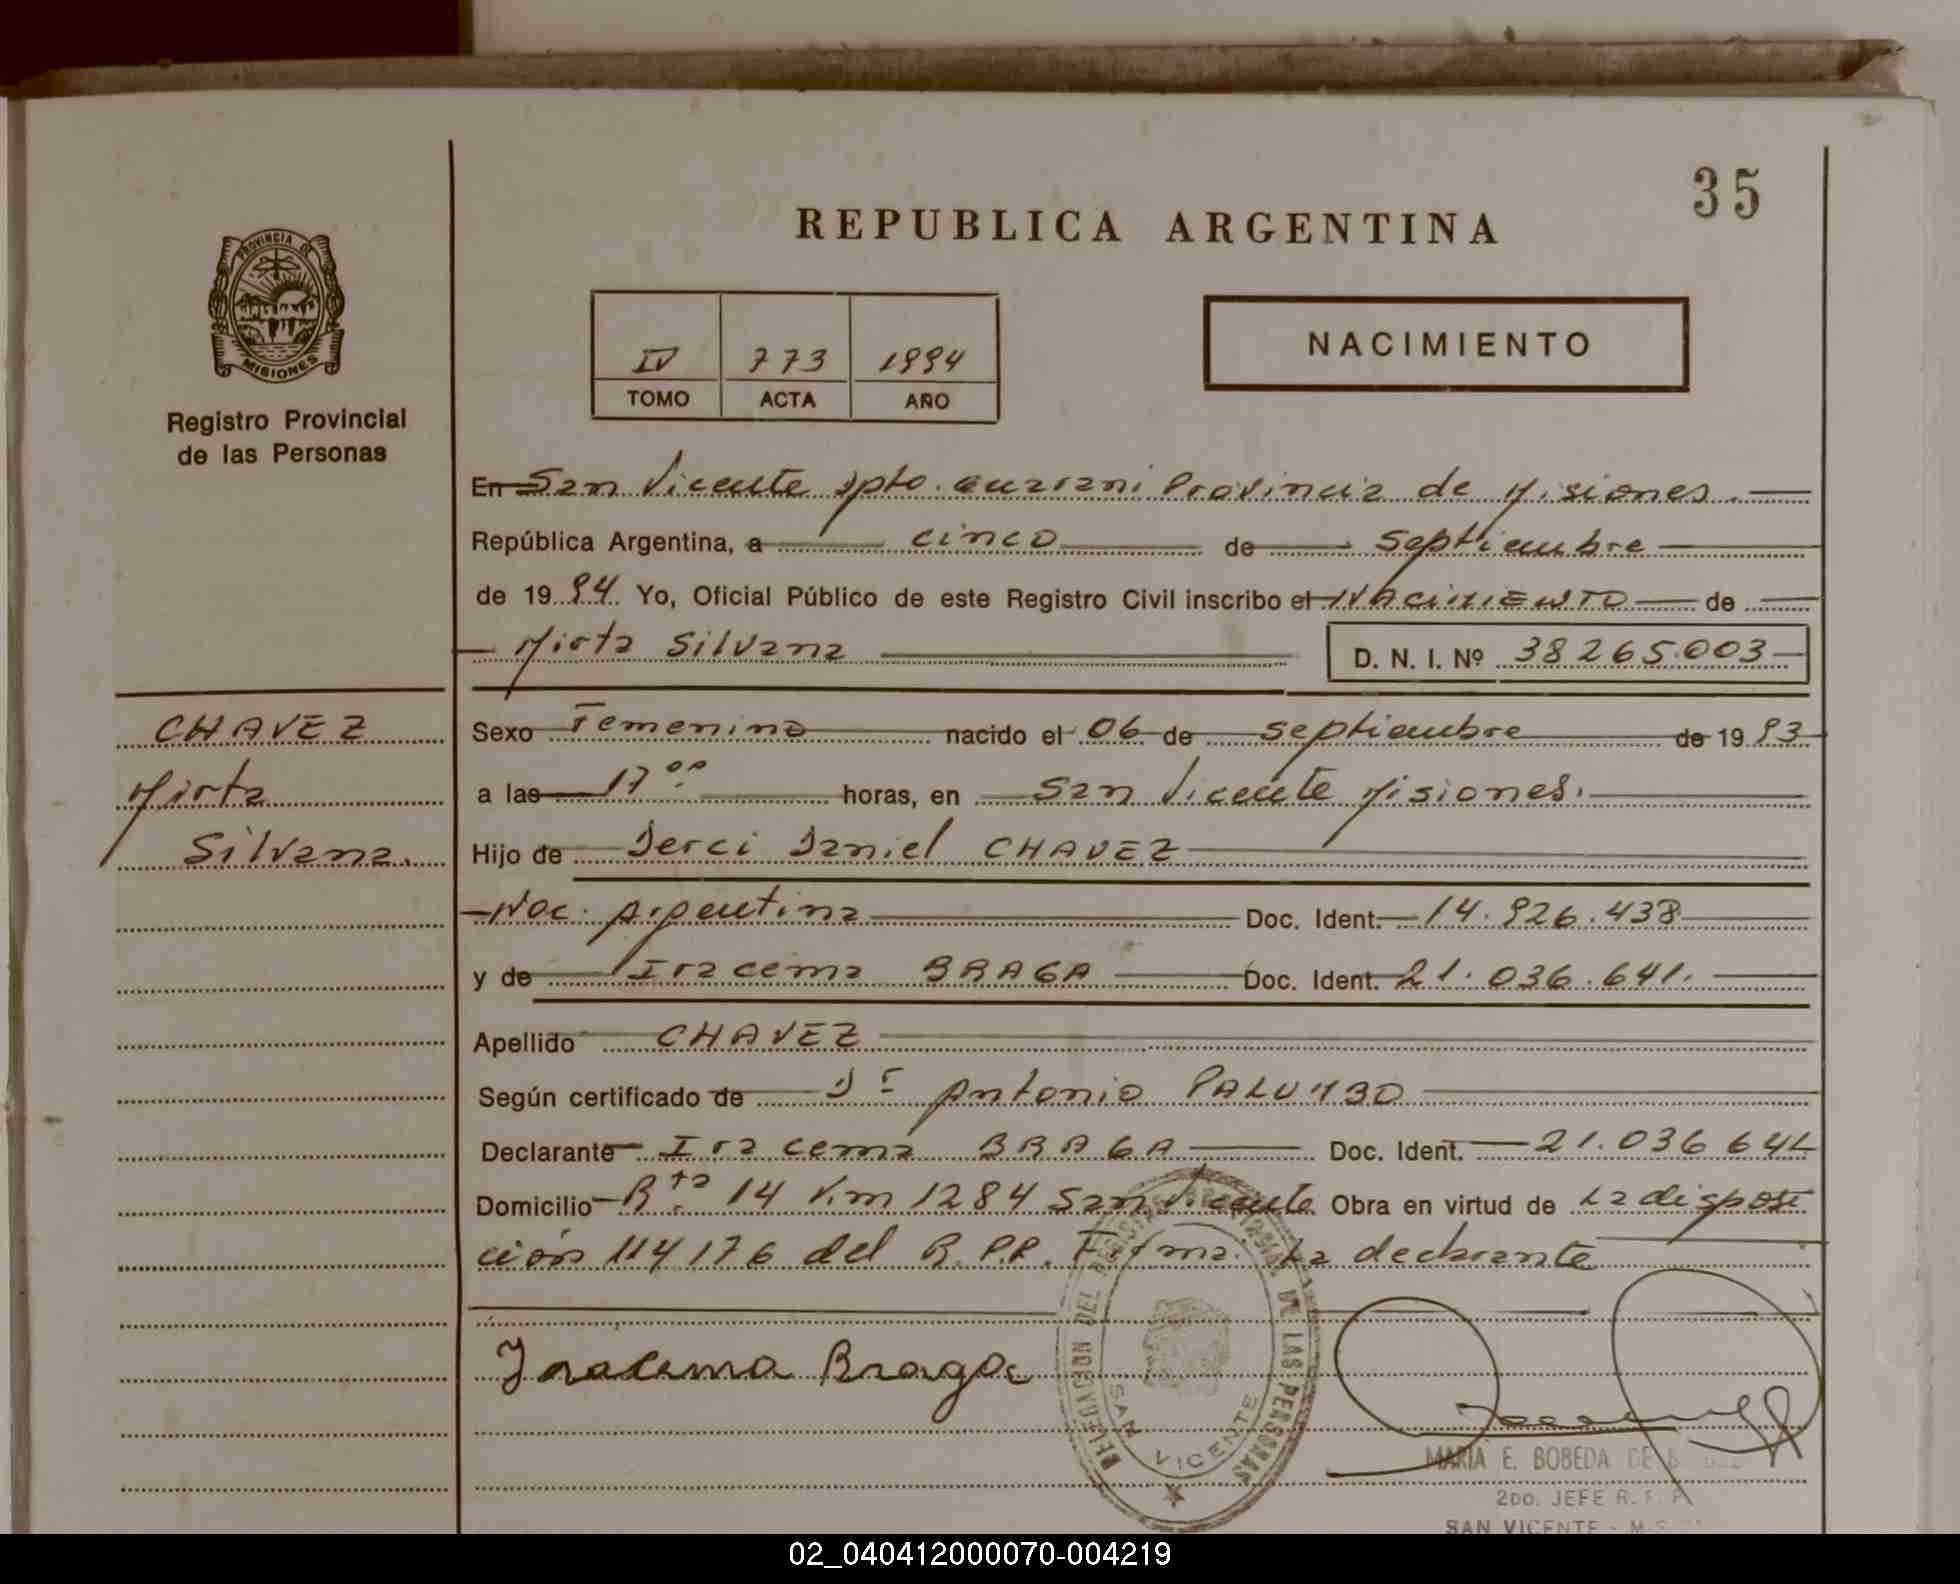 35
REPUBLICA ARGENTINA
PROVINCIA DE
MISIONES
Registro Provincial
de las Personas
IV 773 1994
TOMO ACTA AÑO
NACIMIENTO
En San Vicente Dpto. Guarani Provincia de Misiones.
República Argentina, a cinco de septiembre
de 1994 Yo, Oficial Público de este Registro Civil inscribo el NACIMIENTO de
Mirta Silvana D. N. I. Nº 38265.003
CHAVEZ
Mirta
Silvana.
Sexo Femenino nacido el 06 de septiembre de 1993
a las 17°° horas, en San Vicente Misiones.
Hijo de Derci Daniel CHAVEZ
Nac. Argentina Doc. Ident. 14.926.438
y de Iracema BRAGA Doc. Ident. 21.036.641.
Apellido CHAVEZ
Según certificado de Dr Antonio PALUMBO
Declarante Iracema BRAGA Doc. Ident. 21.036 641
Domicilio Rta 14 Km 1284 San Vicente Obra en virtud de La disposi
ción 114/76 del R.P.P. Firma. La declarante
Iracema Braga
DELEGACION DEL REGISTRO DE LAS PERSONAS
SAN VICENTE
MARIA E. BOBEDA DE
2DO. JEFE R. P. P.
SAN VICENTE - MS
02_040412000070-004219